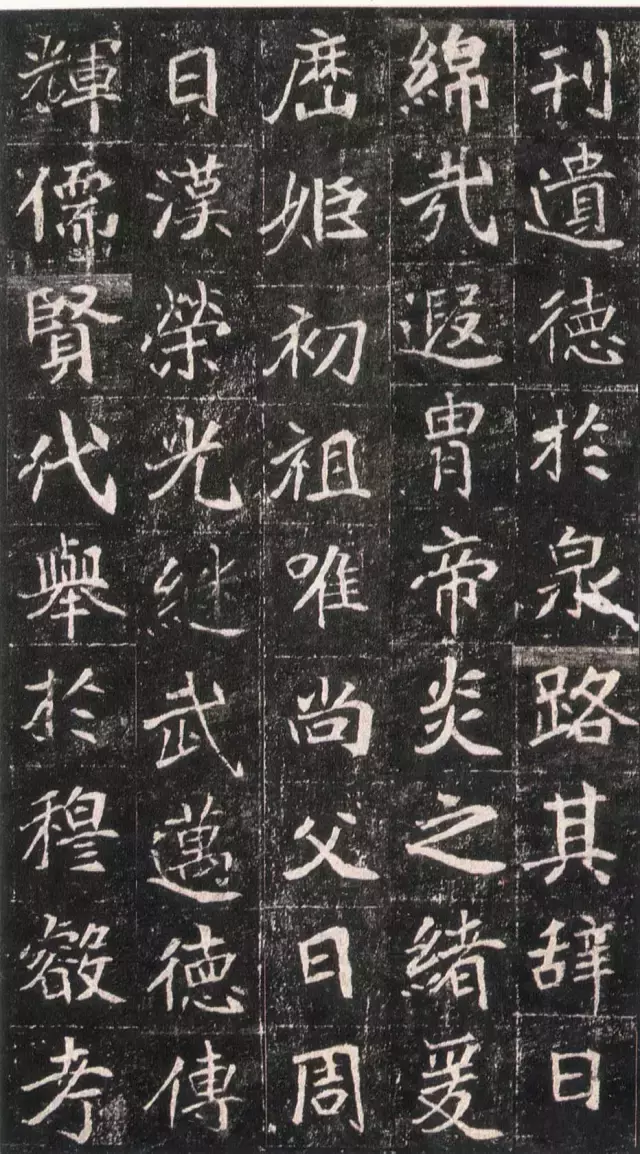 刊遺德於泉路其辞曰
綿㦲遐胄帝炎之緒爰
歷姬初祖唯尚父曰周
曰漢榮光継武邁德傳
輝儒賢代舉於穆叡考